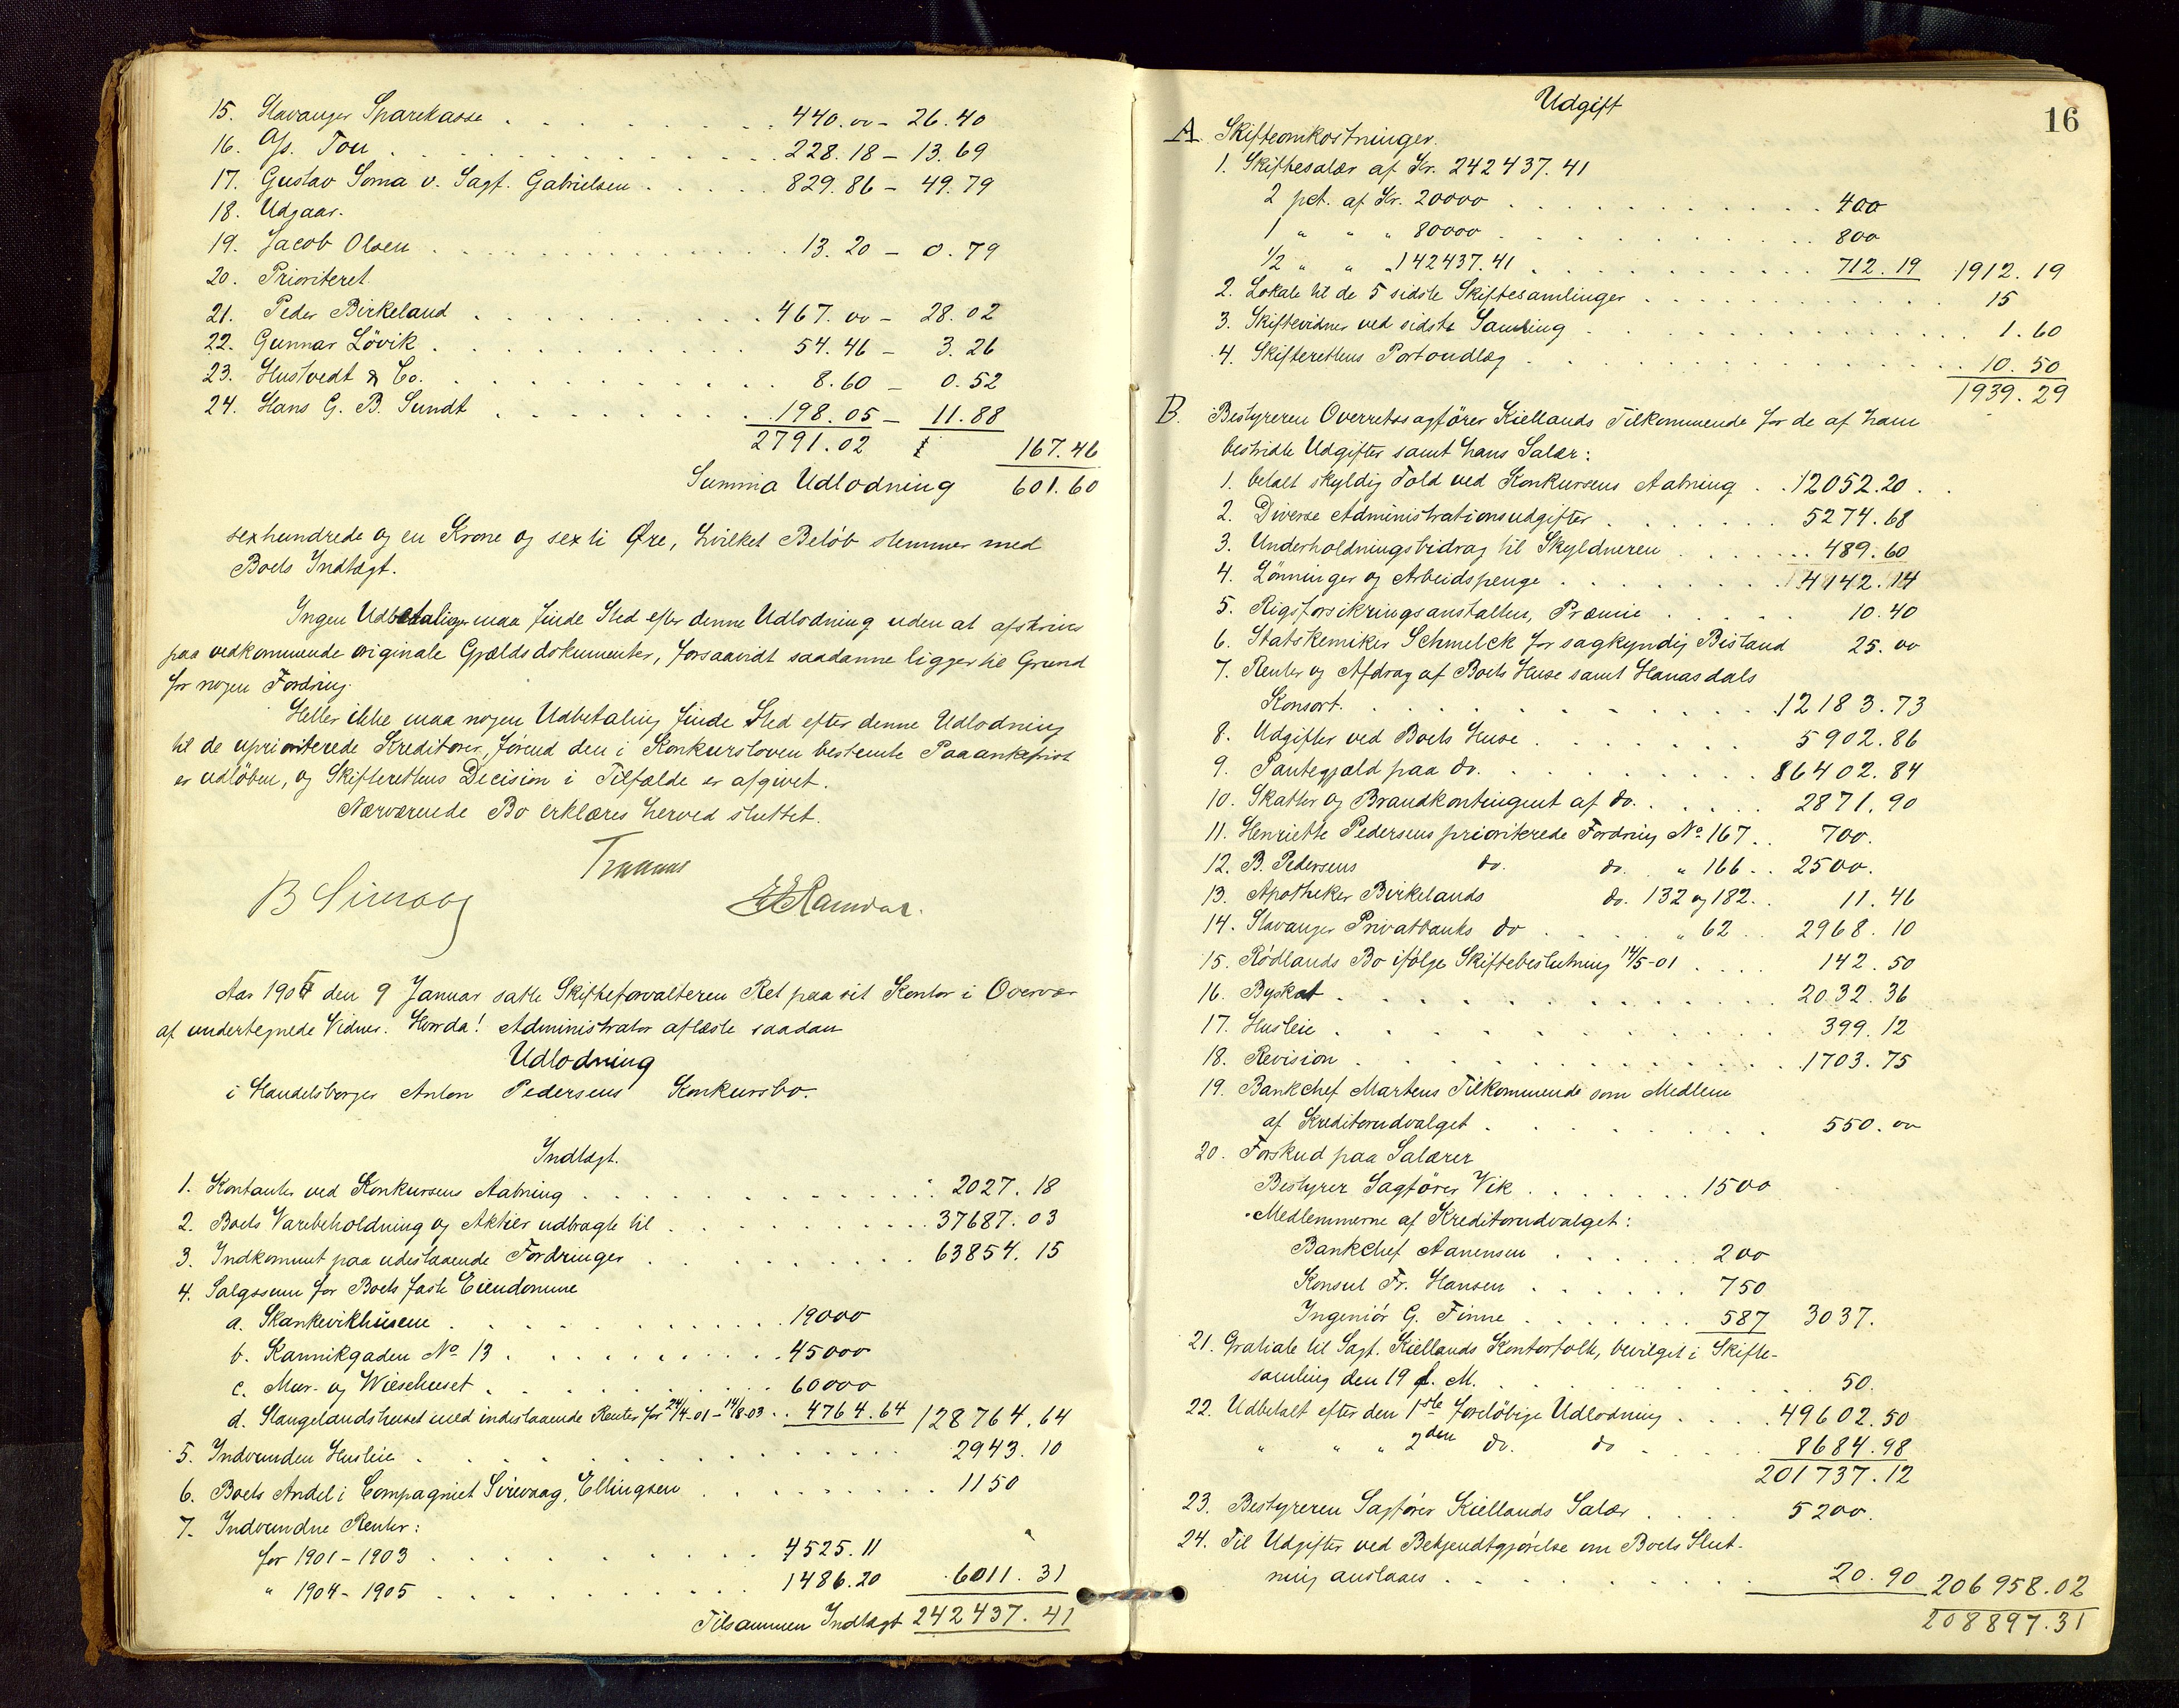 15. Stavanger Sparekasse . . . 440.00 - 26.40
16. A/s. Tou . . . 228.18 - 13.69
17. Gustav Soma v. Sagf. Gabrielsen . . . 829.86 - 49.79
18. Udgaar.
19. Jacob Olsen . . . 13.20 - 0.79
20. Prioriteret
21. Peder Birkeland . . . 467.00 - 28.02
22. Gunnar Lövik . . . 54.46 - 3.26
23. Hustvedt & Co. . . . 8.60 - 0.52
24. Hans G. B. Sundt . . . 198.05 - 11.88
2791.02 167.46
Summa Udlodning 601.60
sexhundrede og en Krone og sexti Øre, hvilket Beløb stemmer med
Boets Indtægt.
Ingen Udbetalinger maa finde Sted efter denne Udlodning uden at afskrives
paa vedkommende originale Gjældsdokumenter, forsaavidt saadanne ligger til Grund
for nogen Fordring.
Heller ikke maa nogen Udbetaling finde Sted efter denne Udlodning
til de uprioriterede Kreditorer, førend den i Konkursloven bestemte Paaankefrist
er udløben, og Skifterettens Decision i Tilfælde er afgivet.
Nærværende Bo erklæres herved sluttet.
B Sirevaag
Aar 1905 den 9 Januar satte Skifteforvalteren Ret paa sit Kontor i Overvær
af undertegnede Vidner. Hvorda! Administrator aflæste saadan
Udlodning
i Handelsborger Anton Pedersens Konkursbo.
Indtægt.
1. Kontanter ved Konkursens Aabning . . . 2027.18
2. Boets Varebeholdning og Aktier udbragte til . . . 37687.03
3. Indkommet paa udestaaende Fordringer . . . 63854.15
4. Salgssum for Boets faste Eiendomme
a. Skankevikhusene . . . 19000
b. Kannikgaden No 13 . . . 45000
c. Mur- og Wiesehuset . . . 60000
d. Slangelandshuset med indestaaende Renter for 24/4-01 - 14/8-03 . . 4764.64 128764.64
5. Indvunden Husleie . . . 2943.10
6. Boets Andel i Compagniet Sirevaag, Ellingsen . . . 1150
7. Indvundne Renter:
for 1901-1903 . . . 4525.11
" 1904-1905 . . . 1486.20 6011.31
Tilsammen Indtægt 242437.41
16
Udgift
A. Skifteomkostninger.
1. Skiftesalær af Kr. 242437.41
2 pct. af Kr. 20000 . . . 400
1 " " " 80000 . . . 800
1/2 " " " 142437.41 . . . 712.19 1912.19
2. Lokale til de 5 sidste Skiftesamlinger . . . 15
3. Skiftevidner ved sidste Samling . . . 1.60
4. Skifterettens Portoudlæg . . . 10.50
1939.29
B. Bestyreren Overretssagfører Kiellands Tilkommende for de af ham
bestridte Udgifter samt hans Salær:
1. betalt skyldig Told ved Konkursens Aabning . . 12052.20
2. Diverse Administrationsudgifter . . . 5274.68
3. Underholdningsbidrag til Skyldneren . . . 489.60
4. Lønninger og Arbeidspenge . . . 4142.14
5. Rigsforsikringsanstalten, Præmie . . . 10.40
6. Statskemiker Schmelck for sagkyndig Bistand 25.00
7. Renter og Afdrag af Boets Huse samt Hanasdals
Konsort. . . . 12183.73
8. Udgifter ved Boets Huse . . . 5902.86
9. Pantegjæld paa do. . . . 86402.84
10. Skatter og Brandkontingent af do. . . . 2871.90
11. Henriette Pedersens prioriterede Fordring No 167 . . 700.
12. B. Pedersens do. do. " 166 . . 2500.
13. Apotheker Birkelands do. 132 og 182 . . 11.46
14. Stavanger Privatbanks do . . . " 62 . . 2968.10
15. Rødlands Bo ifølge Skiftebeslutning 14/5-01 . . . 142.50
16. Byskat . . . 2032.36
17. Husleie . . . 399.12
18. Revision . . . 1703.75
19. Bankchef Martens Tilkommende som Medlem
af Kreditorudvalget . . . 550.00
20. Forskud paa Salærer
Bestyrer Sagfører Vik . . . 1500
Medlemmerne af Kreditorudvalget:
Bankchef Aanensen . . . 200
Konsul Fr. Hansen . . . 750
Ingeniør G. Finne . . . 587 3037.
21. Gratiale til Sagf. Kiellands Kontorfolk, bevilget i Skifte-
samling den 19 f. M. . . . 50.
22. Udbetalt efter den 1ste foreløbige Udlodning . . . 49602.50
" " " 2den do. do . . . 8684.98
201737.12
23. Bestyreren Sagfører Kiellands Salær . . . 5200.
24. Til Udgifter ved Bekjendtgjørelse om Boets Slut-
ning anslaaes . . . 20.90 206958.02
208897.31